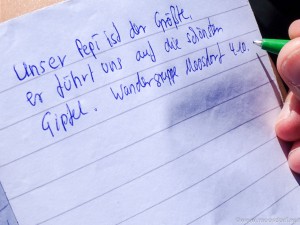 Unser Pepi ist der Größte,
er führt uns auf die schönsten
Gipfel. Wandergruppe Moosdorf 4.10.